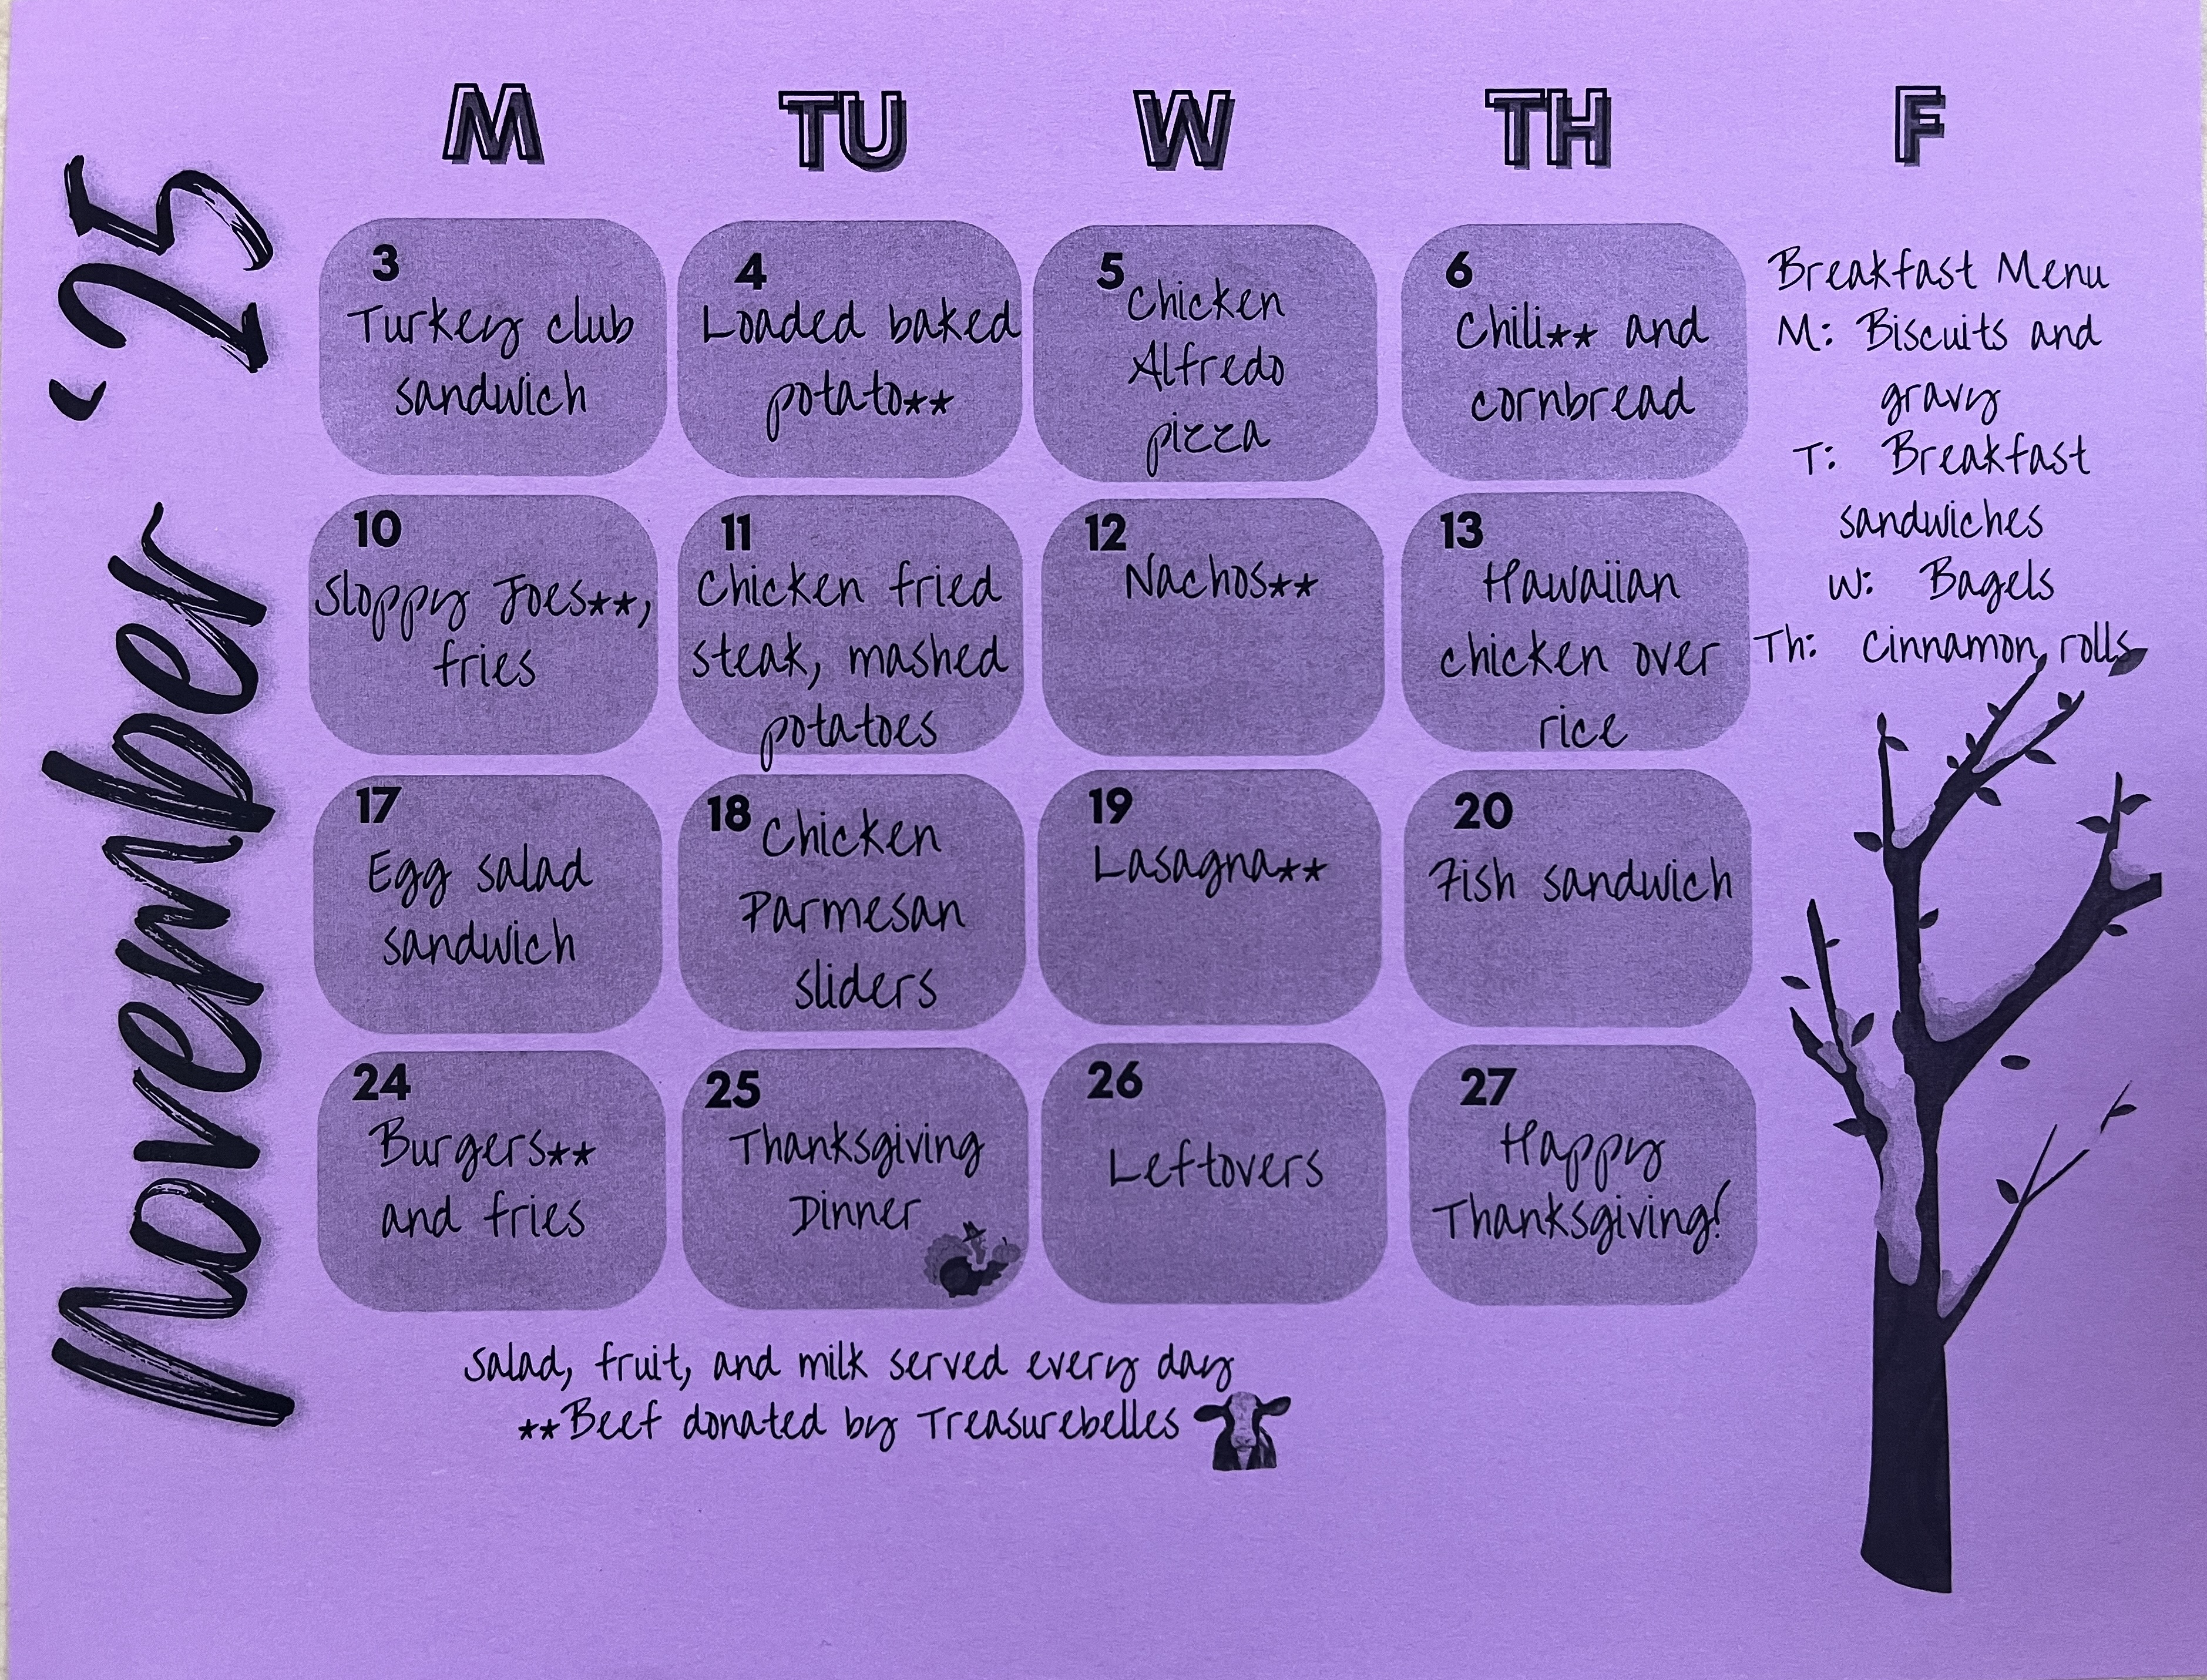 November '25
M
TU
W
TH
F
3
Turkey club
sandwich
4
Loaded baked
potato**
5
Chicken
Alfredo
pizza
6
Chili** and
cornbread
Breakfast Menu
M: Biscuits and
gravy
T: Breakfast
sandwiches
W: Bagels
Th: Cinnamon rolls
10
Sloppy Joes**,
fries
11
Chicken fried
steak, mashed
potatoes
12
Nachos**
13
Hawaiian
chicken over
rice
17
Egg salad
sandwich
18
Chicken
Parmesan
sliders
19
Lasagna**
20
Fish sandwich
24
Burgers**
and fries
25
Thanksgiving
Dinner
26
Leftovers
27
Happy
Thanksgiving!
Salad, fruit, and milk served every day
**Beef donated by Treasurebelles